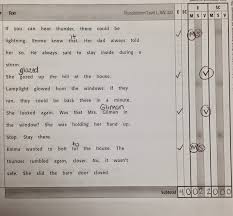 Fox
E SC
E SC
M S V M S V
it
If you can hear thunder, there could be
lightning. Emma knew that. Her dad always told
her so. He always said to stay inside during a
storm.
glazed
She gazed up the hill at the house.
Lamplight glowed from the windows. If they
ran, they could be back there in a minute.
Gilman
She looked again. Was that Mrs. Gilmin in
the window? She was holding her hand up.
Stop. Stay there.
to
Emma wanted to bolt for the house. The
thunder rumbled again, closer. No, it wasn't
safe. She slid the barn door closed.
Subtotal 4 0 0 2 2 0 0 0